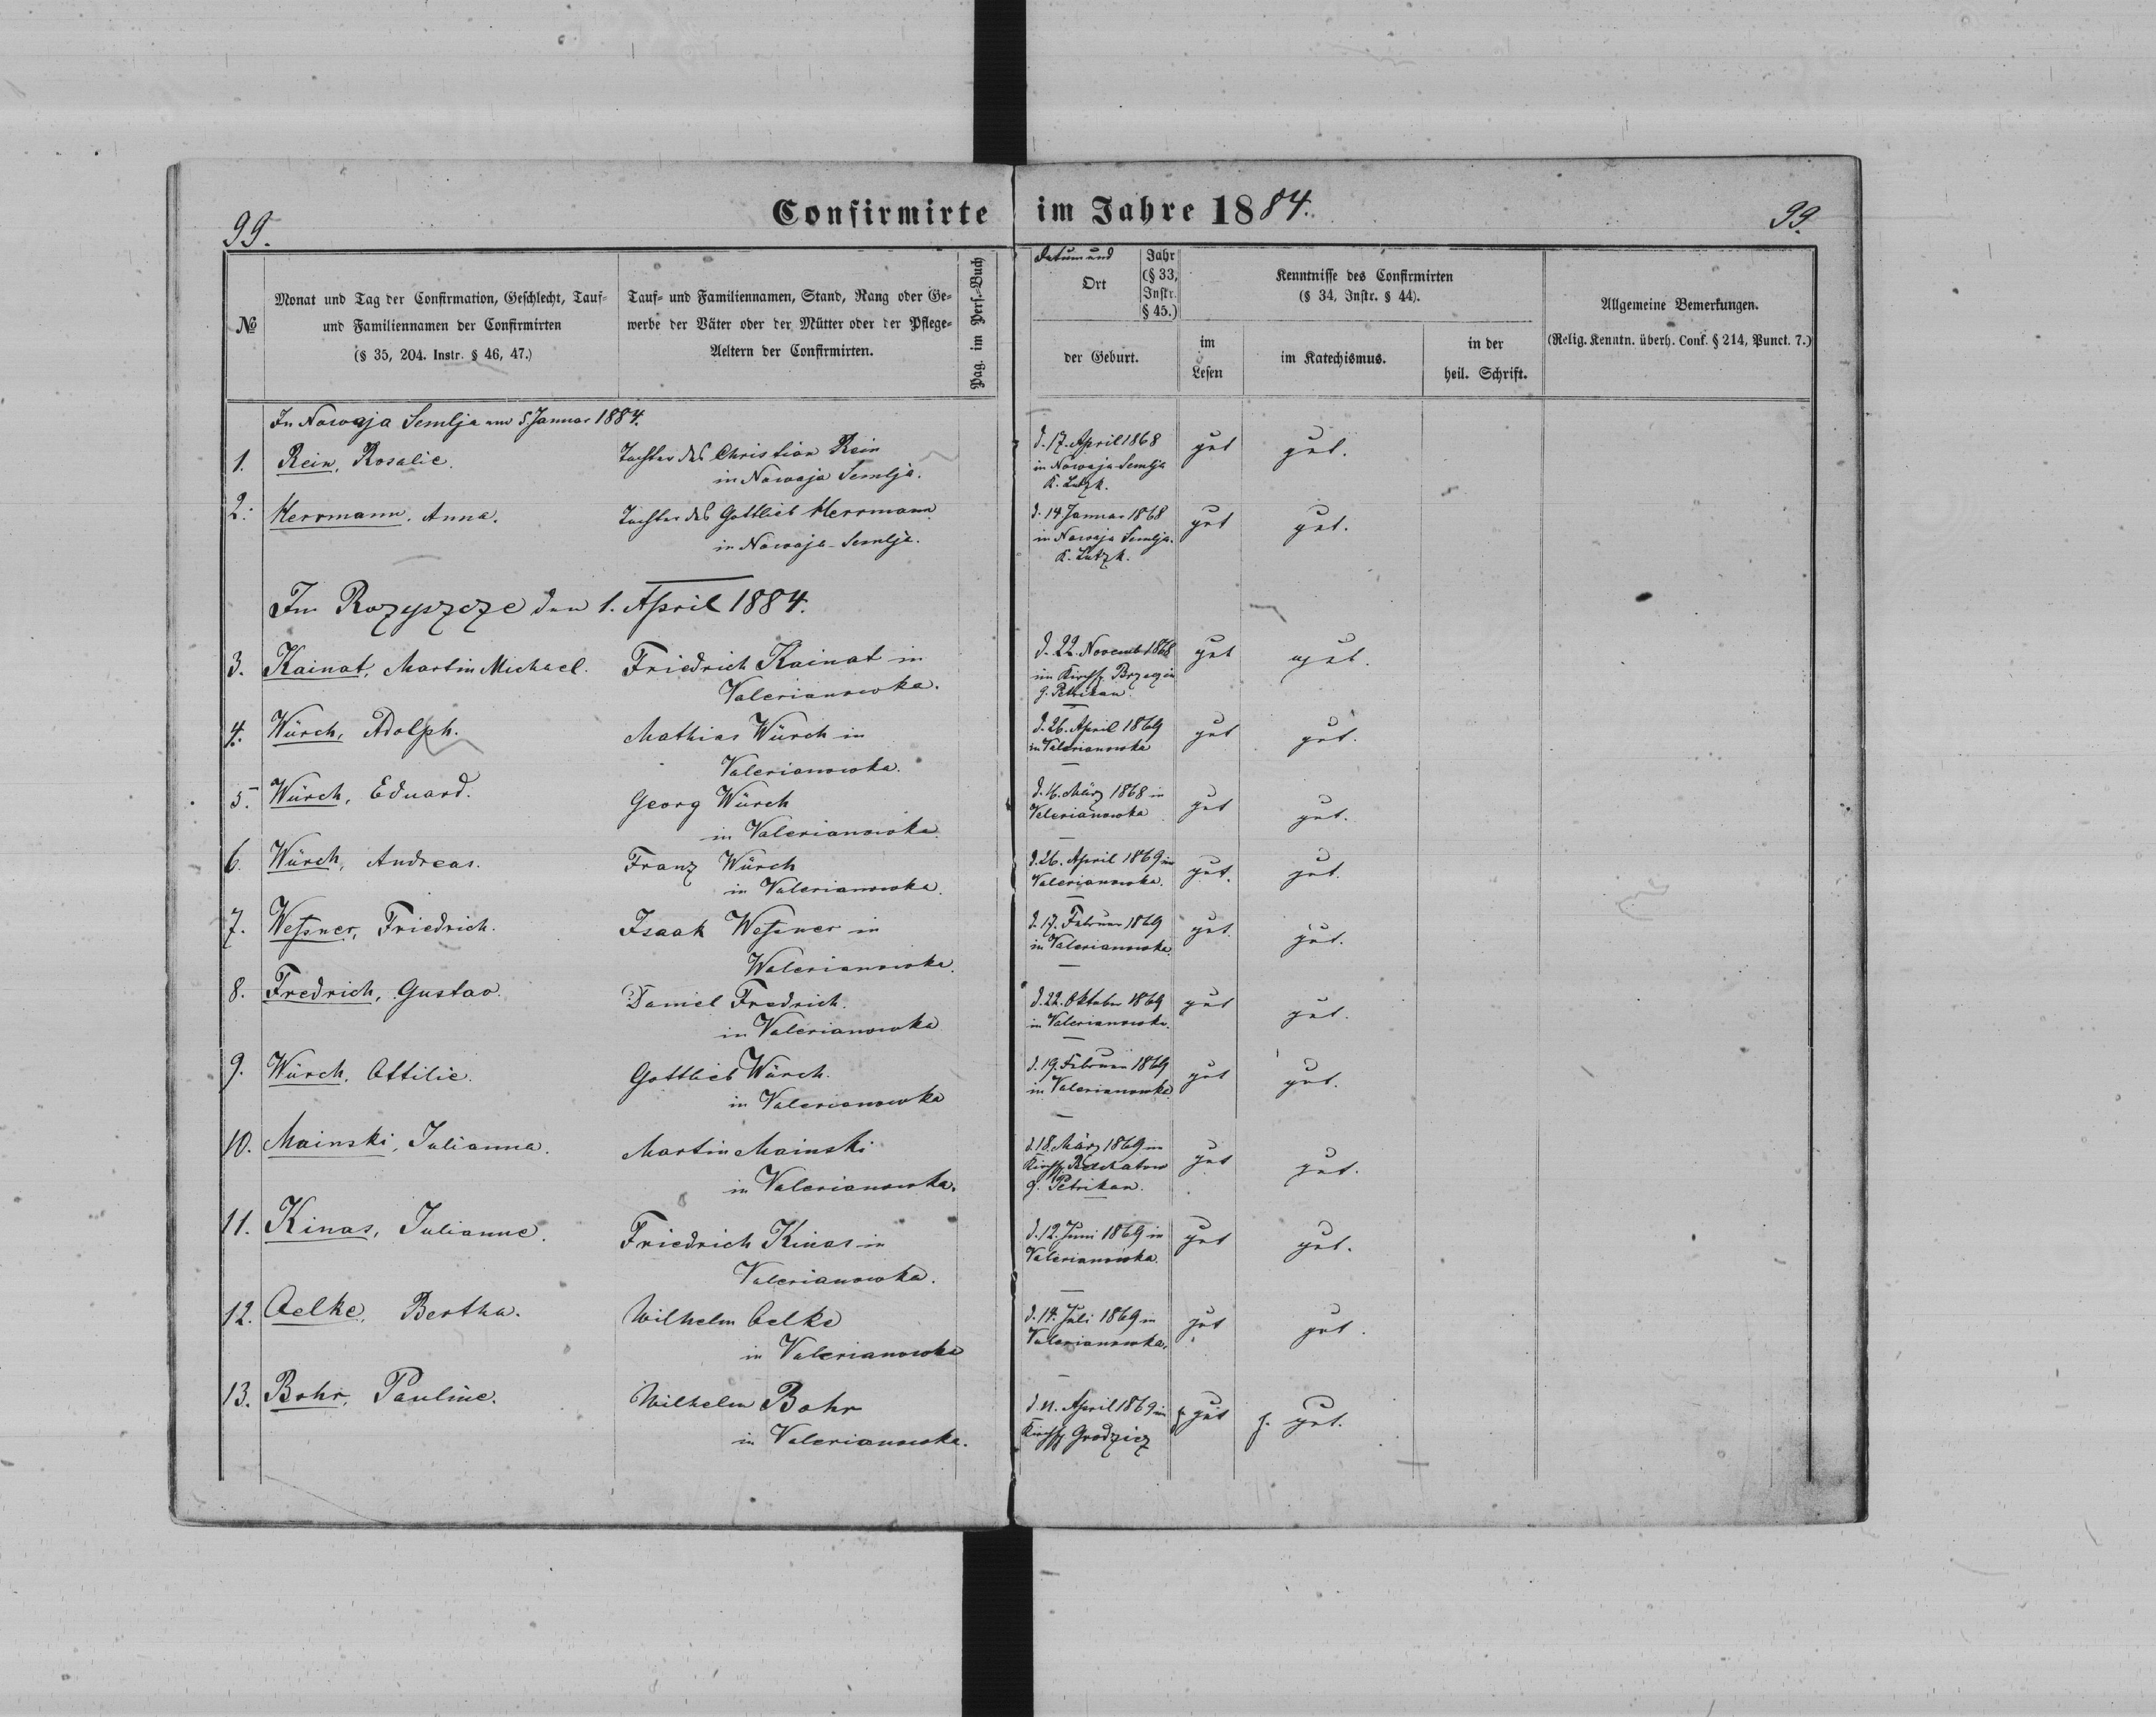 Confirmirte im Jahre 1884.
99.
99.
№
Monat und Tag der Confirmation, Geschlecht, Tauf-
und Familiennamen der Confirmirten
(§ 35, 204. Instr. § 46, 47.)
Tauf- und Familiennamen, Stand, Rang oder Ge-
werbe der Väter oder der Mütter oder der Pflege-
Aeltern der Confirmirten.
Pag. im Pers.-Buch
Datum und
Ort
Jahr
(§ 33,
Instr.
§ 45.)
der Geburt.
Kenntnisse des Confirmirten
(§ 34, Instr. § 44).
im
Lesen
im Katechismus.
in der
heil. Schrift.
Allgemeine Bemerkungen.
(Relig. Kenntn. überh. Conf. § 214, Punct. 7.)
In Nowaja Semlja am 5 Januar 1884.
1. Rein, Rosalie. Tochter des Christian Rein d. 17. April 1868 gut gut.
in Nowaja Semlja. in Nowaja Semlja
K. Lutzk.
2. Herrmann, Anna. Tochter des Gottlieb Herrmann d. 14. Januar 1868 gut gut.
in Nowaja-Semlja. in Nowaja Semlja.
K. Lutzk.
In Rozyszcze den 1. April 1884.
3. Kainat, Martin Michael. Friedrich Kainat in d. 22. Novemb 1868 gut gut.
Valerianowka. im Kirchsp. Brzezin
g. Petrikau.
4. Würch, Adolph. Mathias Würch in d. 26. April 1869 gut gut.
Valerianowka. in Valerianowka
5. Würch, Eduard. Georg Würch d. 16. März 1868 in gut gut.
in Valerianowka. Valerianowka
6. Würch, Andreas. Franz Würch d. 26. April 1869 in gut. gut.
in Valerianowka. Valerianowka.
7. Weßner, Friedrich. Isaak Weßner in d. 17. Februar 1869 gut. gut.
Walerianowka. in Valerianowka.
8. Fredrich, Gustav. Daniel Fredrich. d. 22. Oktober 1869 gut gut.
in Valerianowka in Valerianowka.
9. Würch, Ottilie. Gottlieb Würch. d. 19. Februar 1869 gut gut.
in Valerianowka in Valerianowka
10. Mainski, Julianna. Martin Mainski d. 18. März 1869 im gut gut.
in Valerianowka. Kirchsp.
g. Petrikau.
11. Kinas, Julianne. Friedrich Kinas in d. 12. Juni 1869 in gut gut.
Valerianowka. Valerianowka.
12. Oelke, Bertha. Wilhelm Oelke d. 14. Juli 1869 in gut gut.
in Valerianowka Valerianowka.
13. Bohr, Pauline. Wilhelm Bohr d. 11. April 1869 im s. gut s. gut.
in Valerianowka. Kirchsp. Grodziez